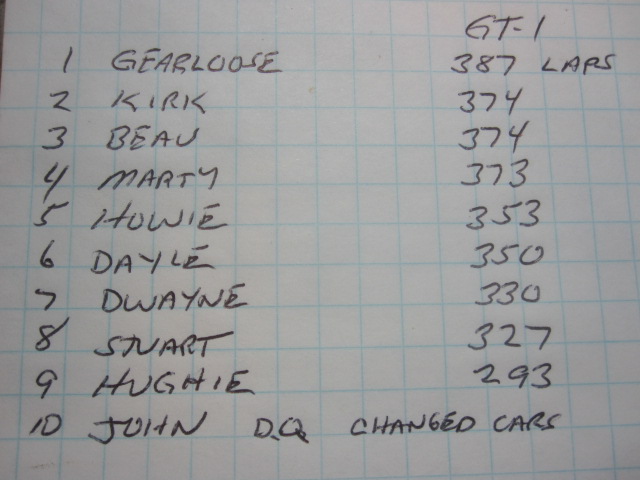 GT-1
1 GEARLOOSE 387 LAPS
2 KIRK 374
3 BEAU 374
4 MARTY 373
5 HOWIE 353
6 DAYLE 350
7 DWAYNE 330
8 STUART 327
9 HUGHIE 293
10 JOHN D.Q. CHANGED CARS